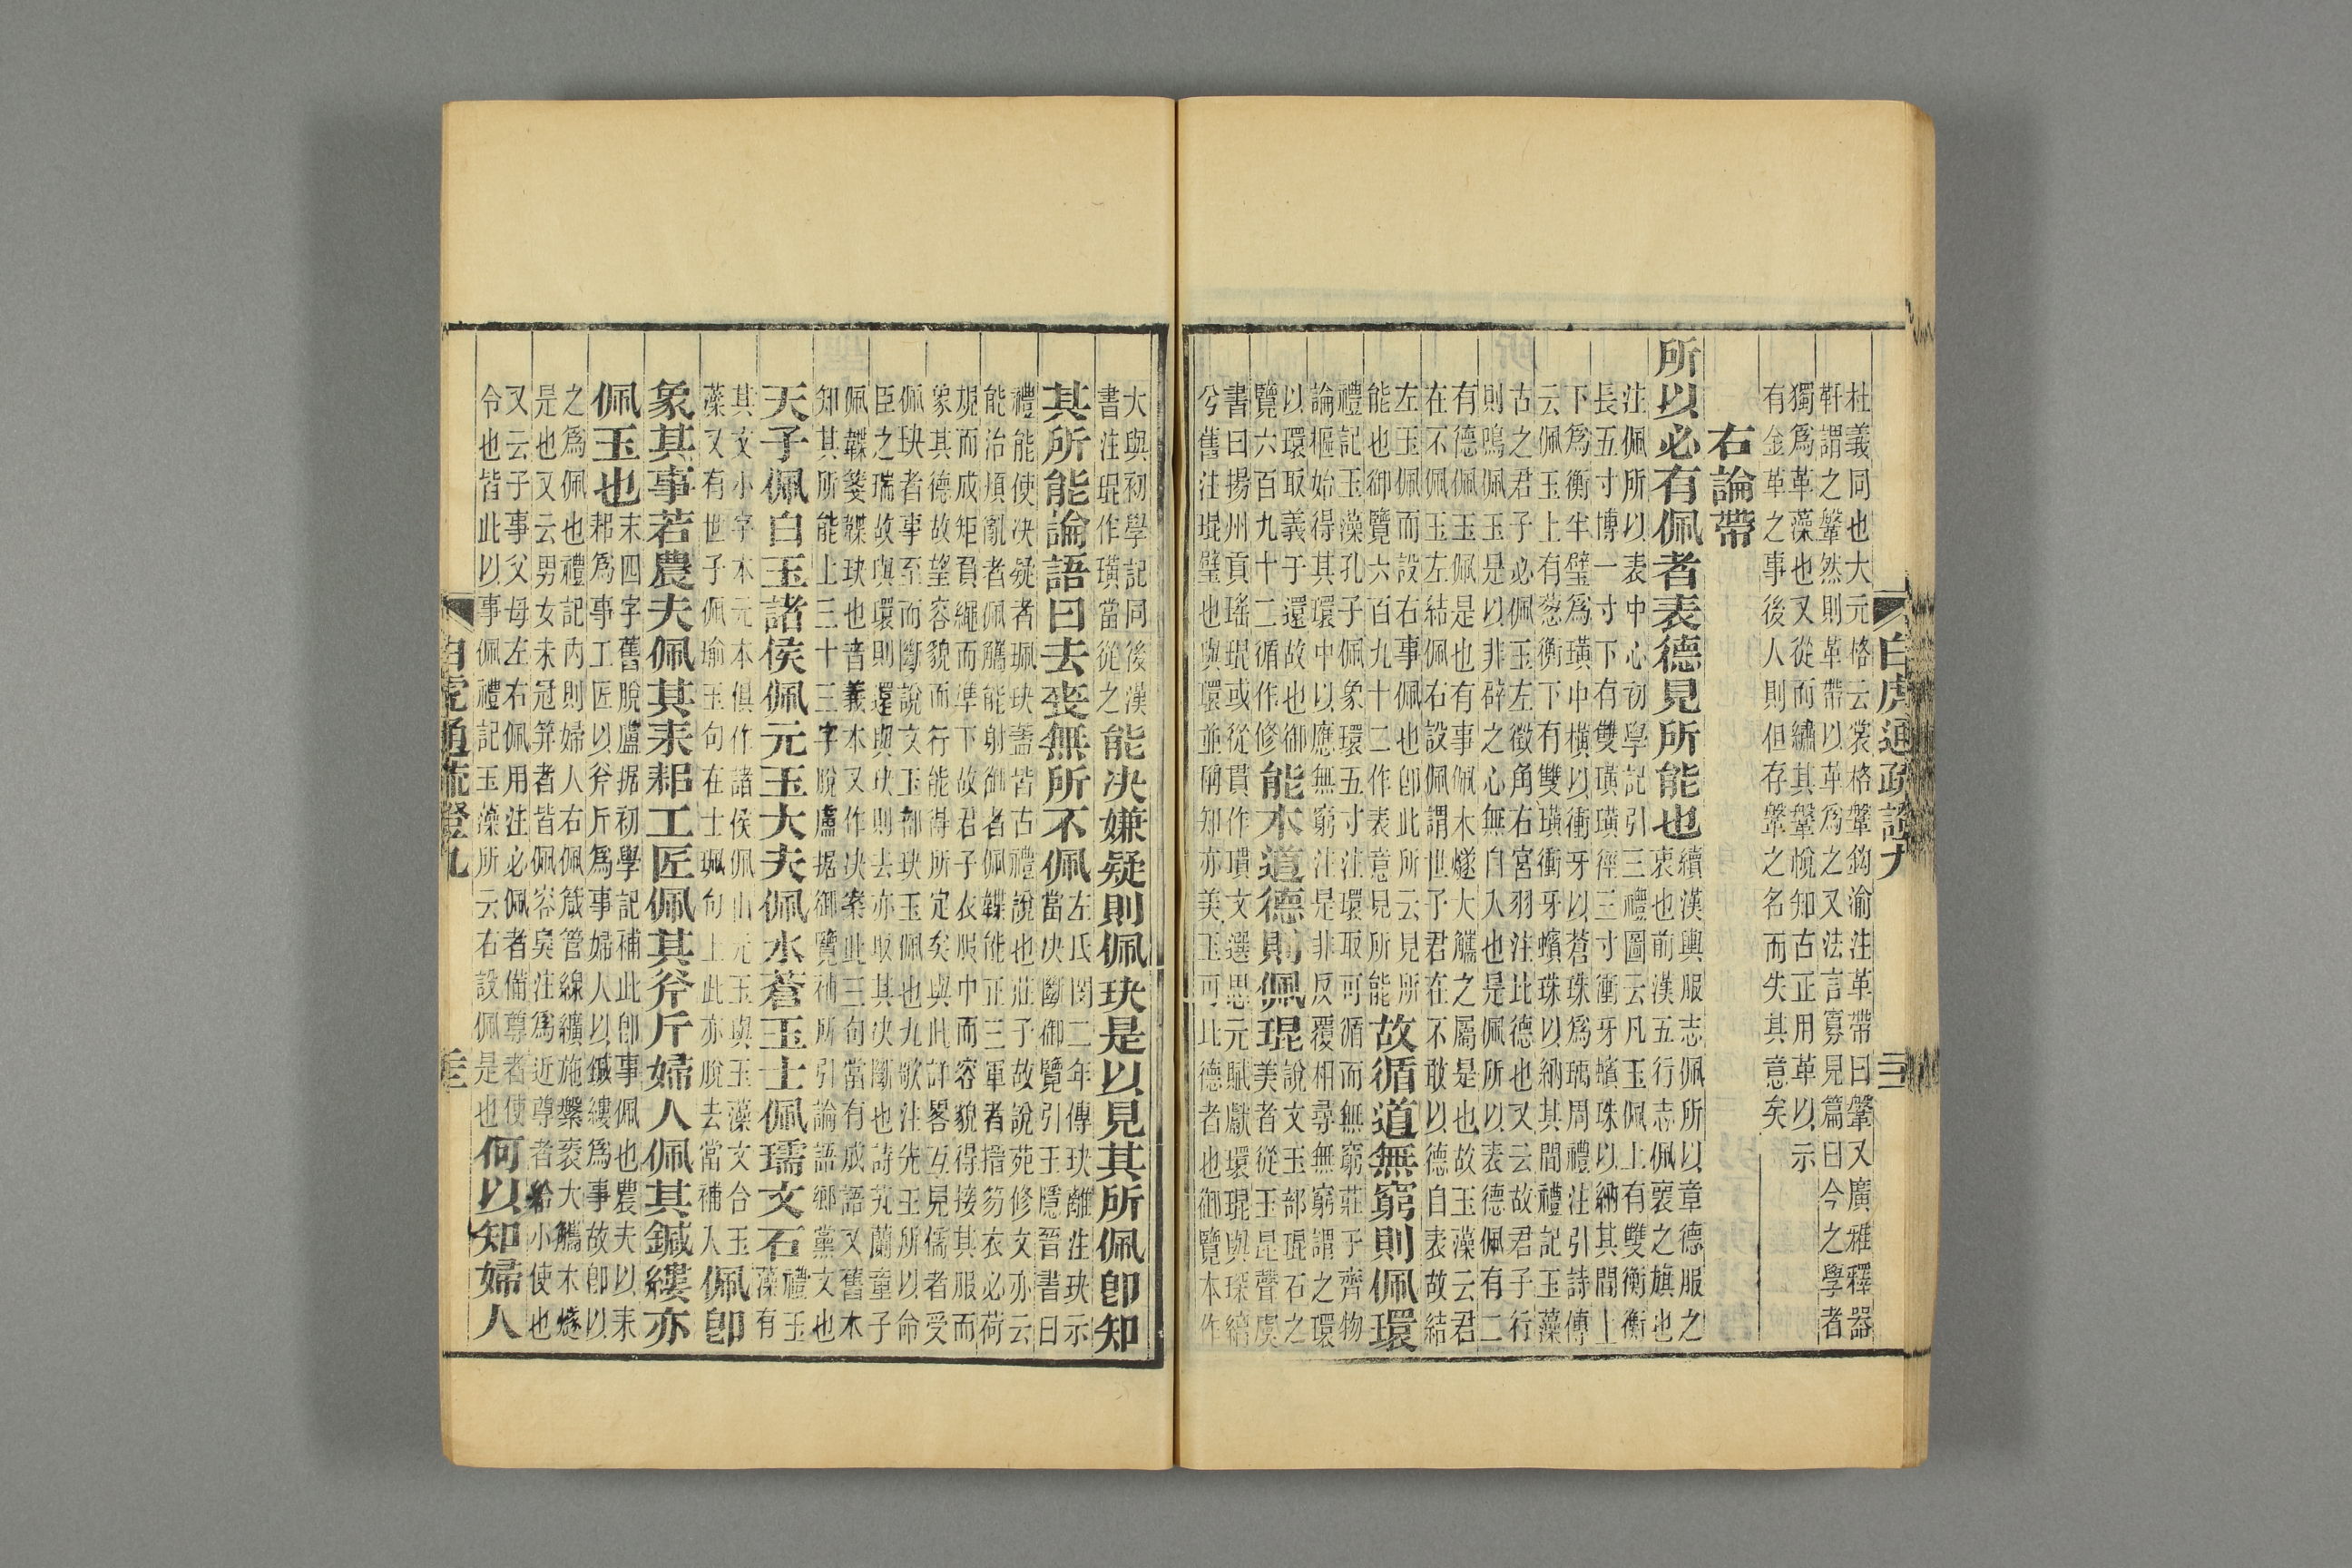 杜義同也大元格云裳格鞶鉤渝注革帶曰鞶又廣雅釋器
鞶謂之鞶然則革帶以革為之又法言寡見篇曰今之學者
獨為革藻也又從而繡其鞶帨知古正用革以示
有金革之事後人則但存鞶之名而失其意矣
右論帶
所以必有佩者表德見所能也
續漢輿服志佩所以章德服之
衷也前漢五行志佩衷之旗也
注佩所以表中心初學記引三禮圖云凡玉佩上有雙衡衡
長五寸博一寸下有雙璜璜徑三寸衝牙蠙珠以納其間上
下為衡半璧為璜中橫以衝牙以蒼珠為瑀周禮注引詩傳
云佩玉上有葱衡下有雙璜衝牙蠙珠以納其間禮記玉藻
古之君子必佩玉左徵角右宮羽注比德也又云故君子行
則鳴佩玉是以非辟之心無自入也是佩所以表德佩有二
有德佩玉佩是也有事佩木燧大觿之屬是也故玉藻云君
在不佩玉左結佩右設佩謂世子君在不敢以德自表故結
左玉佩而設右事佩也即此所云見所
能也御覽六百九十二作表意見所能
故循道無窮則佩環
禮記玉藻孔子佩象環五寸注環取可循而無窮莊子齊物
論樞始得其環中以應無窮注是非反覆相尋無窮謂之環
以環取義于還故也御
覽六百九十二循作修
能本道德則佩琨
說文玉部琨石之
美者從玉昆聲虞
書曰揚州貢瑤琨或從貫作瑻文選思元賦獻環琨與琛縭
兮舊注琨璧也與環並稱知亦美玉可比德者也御覽本作
大與初學記同後漢
書注琨作璜當從之
能決嫌疑則佩玦是以見其所佩即知
其所能論語曰去喪無所不佩
左氏閔二年傳玦離注玦示
當決斷御覽引王隱晉書曰
禮能使決疑者珮玦蓋皆古禮說也莊子故說苑修文亦云
能治煩亂者佩觿能射御者佩韘能正三軍者搢笏衣必荷
規而成矩負繩而準下故君子衣服中而容貌得接其服而
象其德故望容貌而行能得所定矣與此詳畧互見儒者受
佩玦者事至而斷說文玉部玦玉佩也九歌注先王所以命
臣之瑞故與環則還與玦則去亦取其決斷也詩芄蘭童子
佩韘箋韘玦也音義本又作決案此三句當有成語又舊本
知其所能上三十三字脫盧据御覽補所引論語鄉黨文也
天子佩白玉諸侯佩元玉大夫佩水蒼玉士佩瓀文石
禮玉
藻有
其文小字本元本俱作諸侯佩山元玉與玉藻文合玉
藻又有世子佩瑜玉句在士珮句上此亦脫去當補入
佩即
象其事若農夫佩其耒耜工匠佩其斧斤婦人佩其鍼縷亦
佩玉也
末四字舊脫盧据初學記補此即事佩也農夫以耒
耜為事工匠以斧斤為事婦人以鍼縷為事故即以
之為佩也禮記內則婦人右佩箴管線纊施縏袠大觿木燧
是也又云男女未冠笄者皆佩容臭注為近尊者給小使也
又云子事父母左右佩用注必佩者備尊者使
令也皆此以事佩禮記玉藻所云右設佩是也
何以知婦人
白虎通疏證九